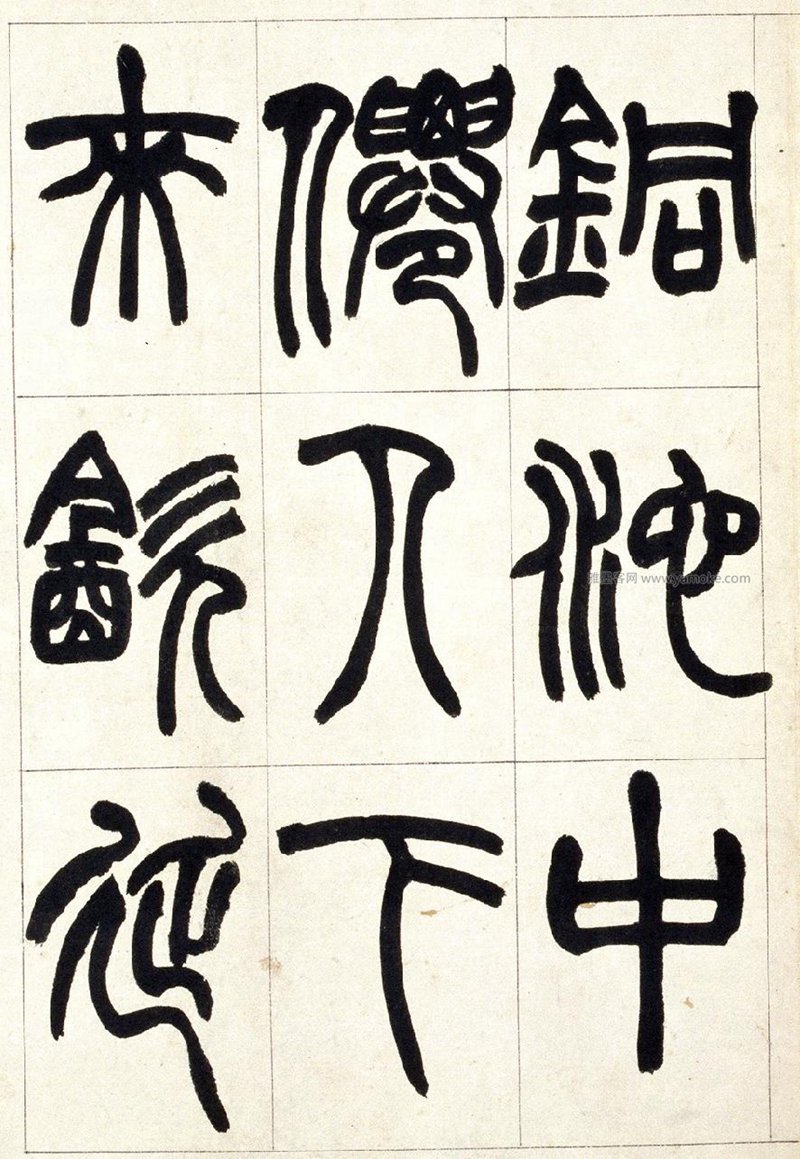 銅池中
僊人下
來飲延
雅墨客网 www.yamoke.com